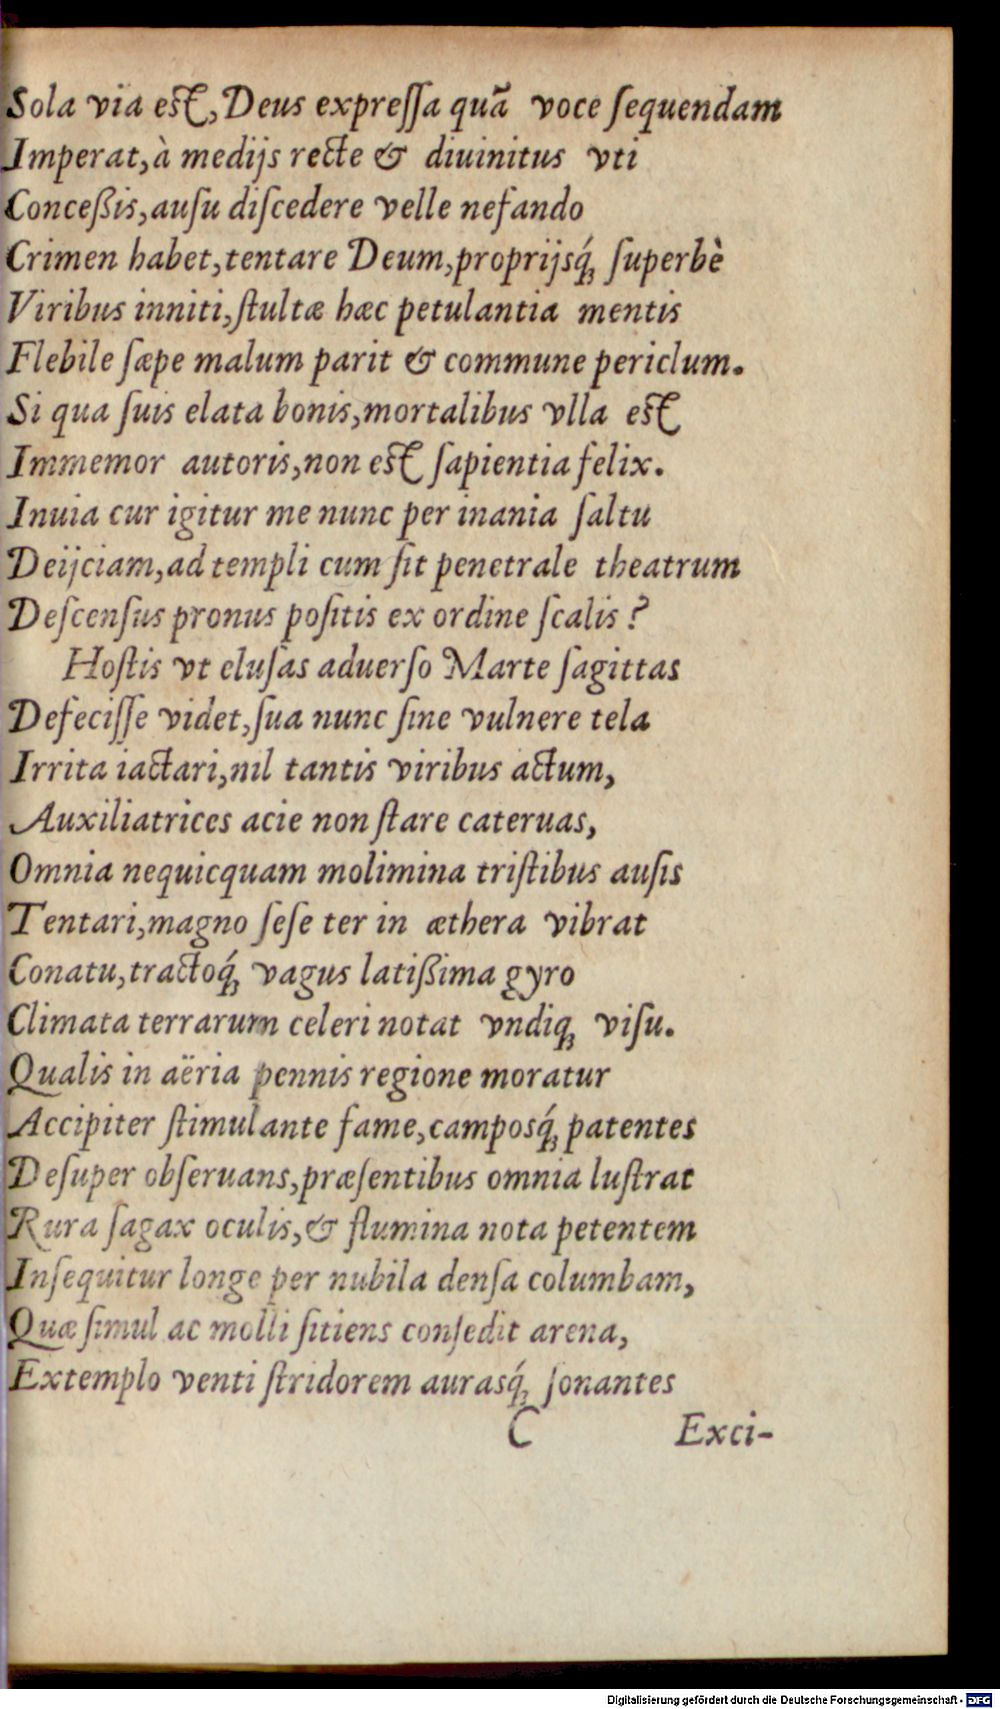 Sola via est, Deus expreſſa quā voce ſequendam
Imperat, à medijs recte & diuinitus vti
Conceßis, auſu diſcedere velle nefando
Crimen habet, tentare Deum, proprijsq́; ſuperbè
Viribus inniti, ſtultæ hæc petulantia mentis
Flebile ſæpe malum parit & commune periclum.
Si qua ſuis elata bonis, mortalibus vlla est
Immemor autoris, non est ſapientia felix.
Inuia cur igitur me nunc per inania ſaltu
Deijciam, ad templi cum ſit penetrale theatrum
Deſcenſus pronus poſitis ex ordine ſcalis?
Hoſtis vt eluſas aduerſo Marte ſagittas
Defeciſſe videt, ſua nunc ſine vulnere tela
Irrita iactari, nil tantis viribus actum,
Auxiliatrices acie non ſtare cateruas,
Omnia nequicquam molimina triſtibus auſis
Tentari, magno ſeſe ter in æthera vibrat
Conatu, tractoq́; vagus latißima gyro
Climata terrarum celeri notat vndiq; viſu.
Qualis in aëria pennis regione moratur
Accipiter ſtimulante fame, camposq́; patentes
Deſuper obſeruans, præſentibus omnia luſtrat
Rura ſagax oculis, & flumina nota petentem
Inſequitur longe per nubila denſa columbam,
Quæ ſimul ac molli ſitiens conſedit arena,
Extemplo venti ſtridorem aurasq́; ſonantes
C Exci-
Digitalisierung gefördert durch die Deutsche Forschungsgemeinschaft - DFG